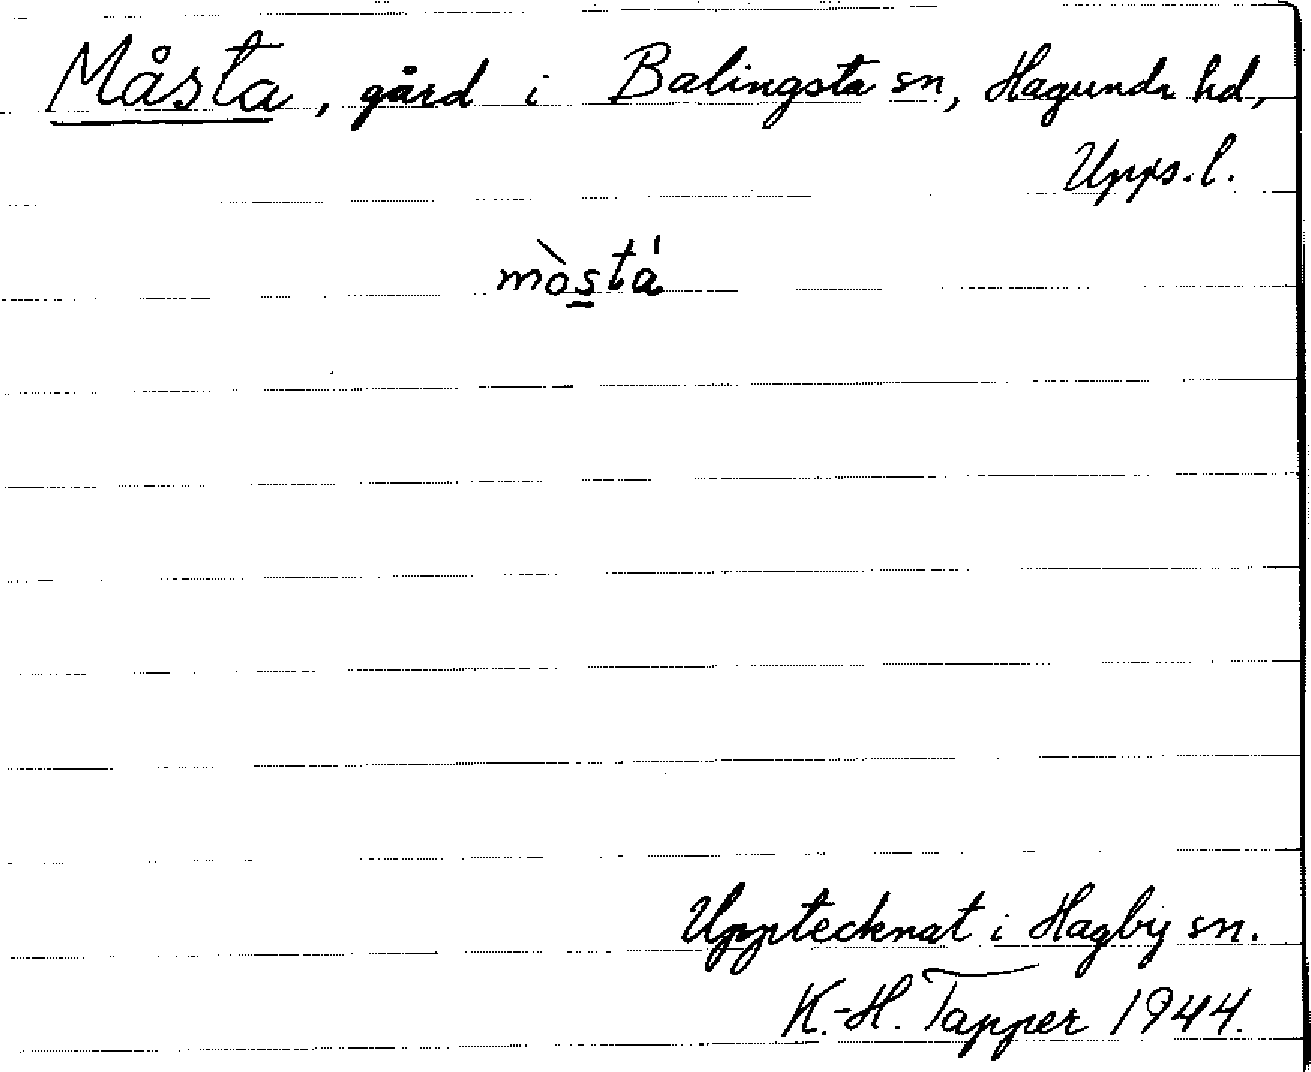 Måsta, gård i Balingsta sn, Hagunda hd,
Upps. l.
mòstá
Upptecknat i Hagby sn.
K.-H. Tapper 1944.